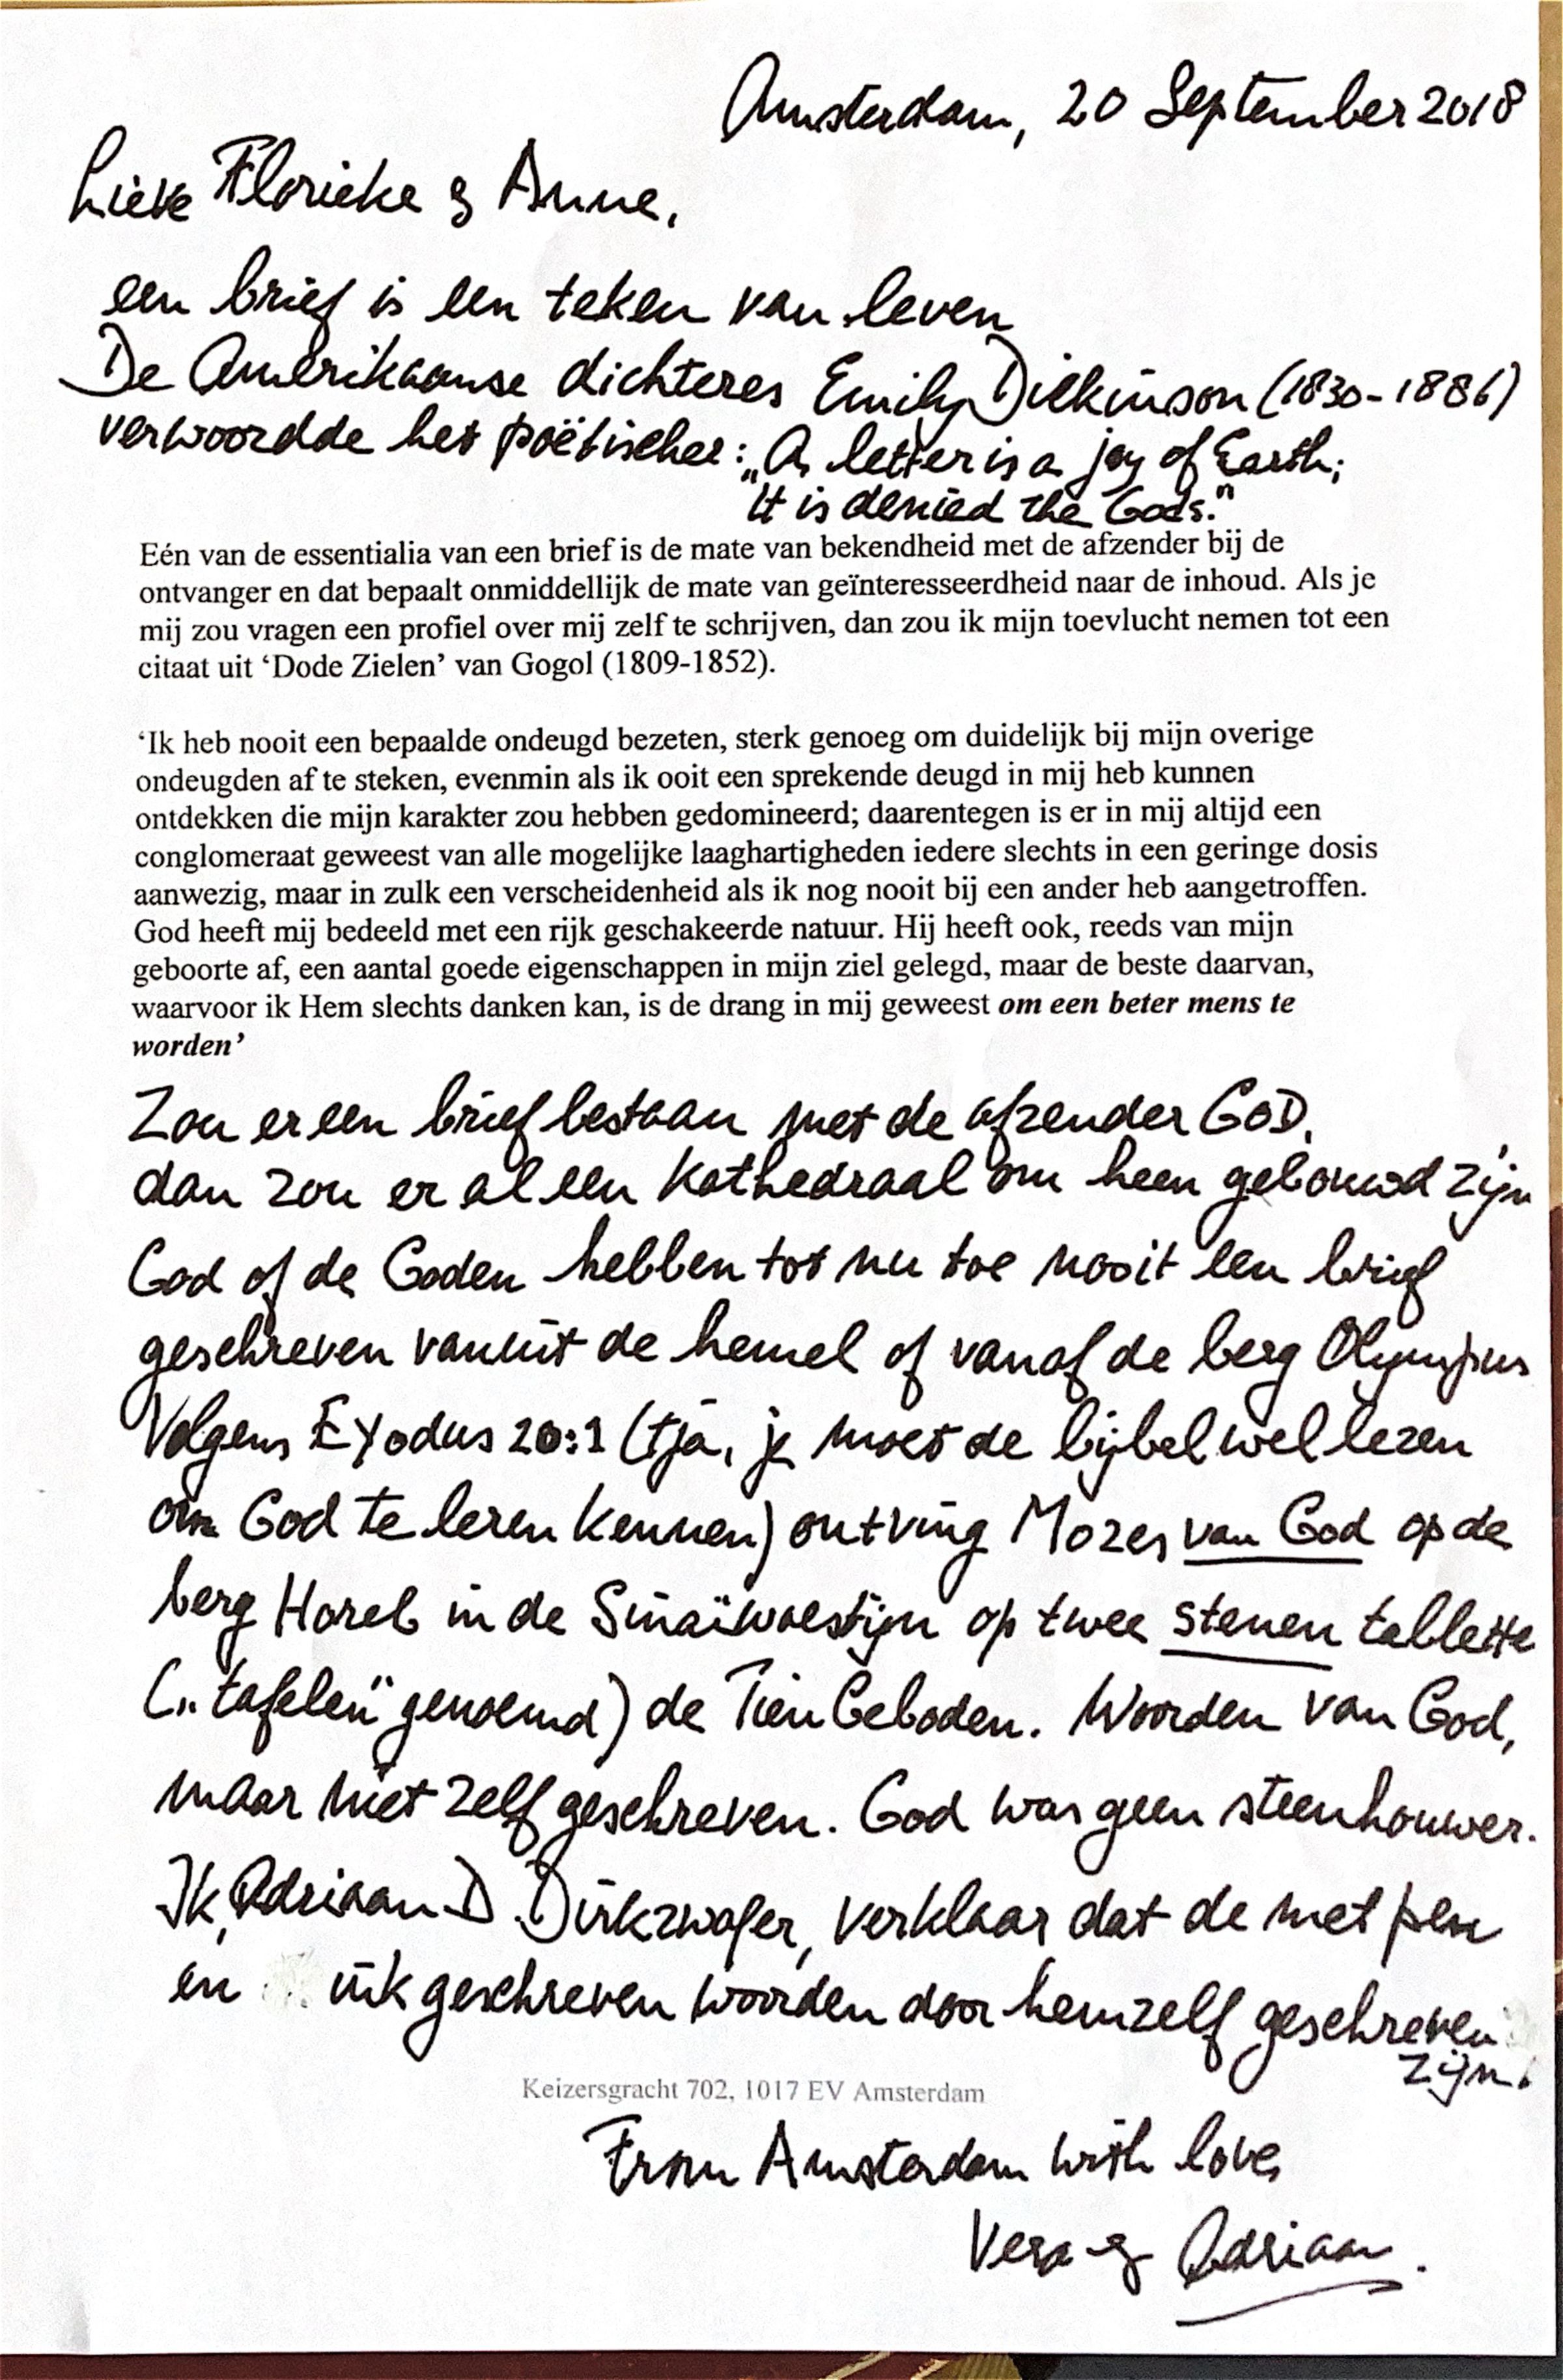 Amsterdam, 20 September 2018
Lieve Florieke & Anne,
een brief is een teken van leven
De Amerikaanse dichteres Emily Dickinson (1830-1886)
verwoordde het poëtischer: „A letter is a joy of Earth;
It is denied the Gods."
Eén van de essentialia van een brief is de mate van bekendheid met de afzender bij de
ontvanger en dat bepaalt onmiddellijk de mate van geïnteresseerdheid naar de inhoud. Als je
mij zou vragen een profiel over mij zelf te schrijven, dan zou ik mijn toevlucht nemen tot een
citaat uit ‘Dode Zielen’ van Gogol (1809-1852).
‘Ik heb nooit een bepaalde ondeugd bezeten, sterk genoeg om duidelijk bij mijn overige
ondeugden af te steken, evenmin als ik ooit een sprekende deugd in mij heb kunnen
ontdekken die mijn karakter zou hebben gedomineerd; daarentegen is er in mij altijd een
conglomeraat geweest van alle mogelijke laaghartigheden iedere slechts in een geringe dosis
aanwezig, maar in zulk een verscheidenheid als ik nog nooit bij een ander heb aangetroffen.
God heeft mij bedeeld met een rijk geschakeerde natuur. Hij heeft ook, reeds van mijn
geboorte af, een aantal goede eigenschappen in mijn ziel gelegd, maar de beste daarvan,
waarvoor ik Hem slechts danken kan, is de drang in mij geweest om een beter mens te
worden’
Zou er een brief bestaan met de afzender GOD,
dan zou er al een kathedraal om heen gebouwd zijn
God of de Goden hebben tot nu toe nooit een brief
geschreven vanuit de hemel of vanaf de berg Olympus
Volgens Exodus 20:1 (tja, je moet de bijbel wel lezen
om God te leren kennen) ontving Mozes van God op de
berg Horeb in de Sinaïwoestijn op twee stenen tablette
(„tafelen" genoemd) de Tien Geboden. Woorden van God,
maar niet zelf geschreven. God was geen steenhouwer.
Ik, Adriaan D Dirkzwager, verklaar dat de met pen
en ink geschreven woorden door hemzelf geschreven
zijn.
Keizersgracht 702, 1017 EV Amsterdam
From Amsterdam with love,
Vera & Adriaan.